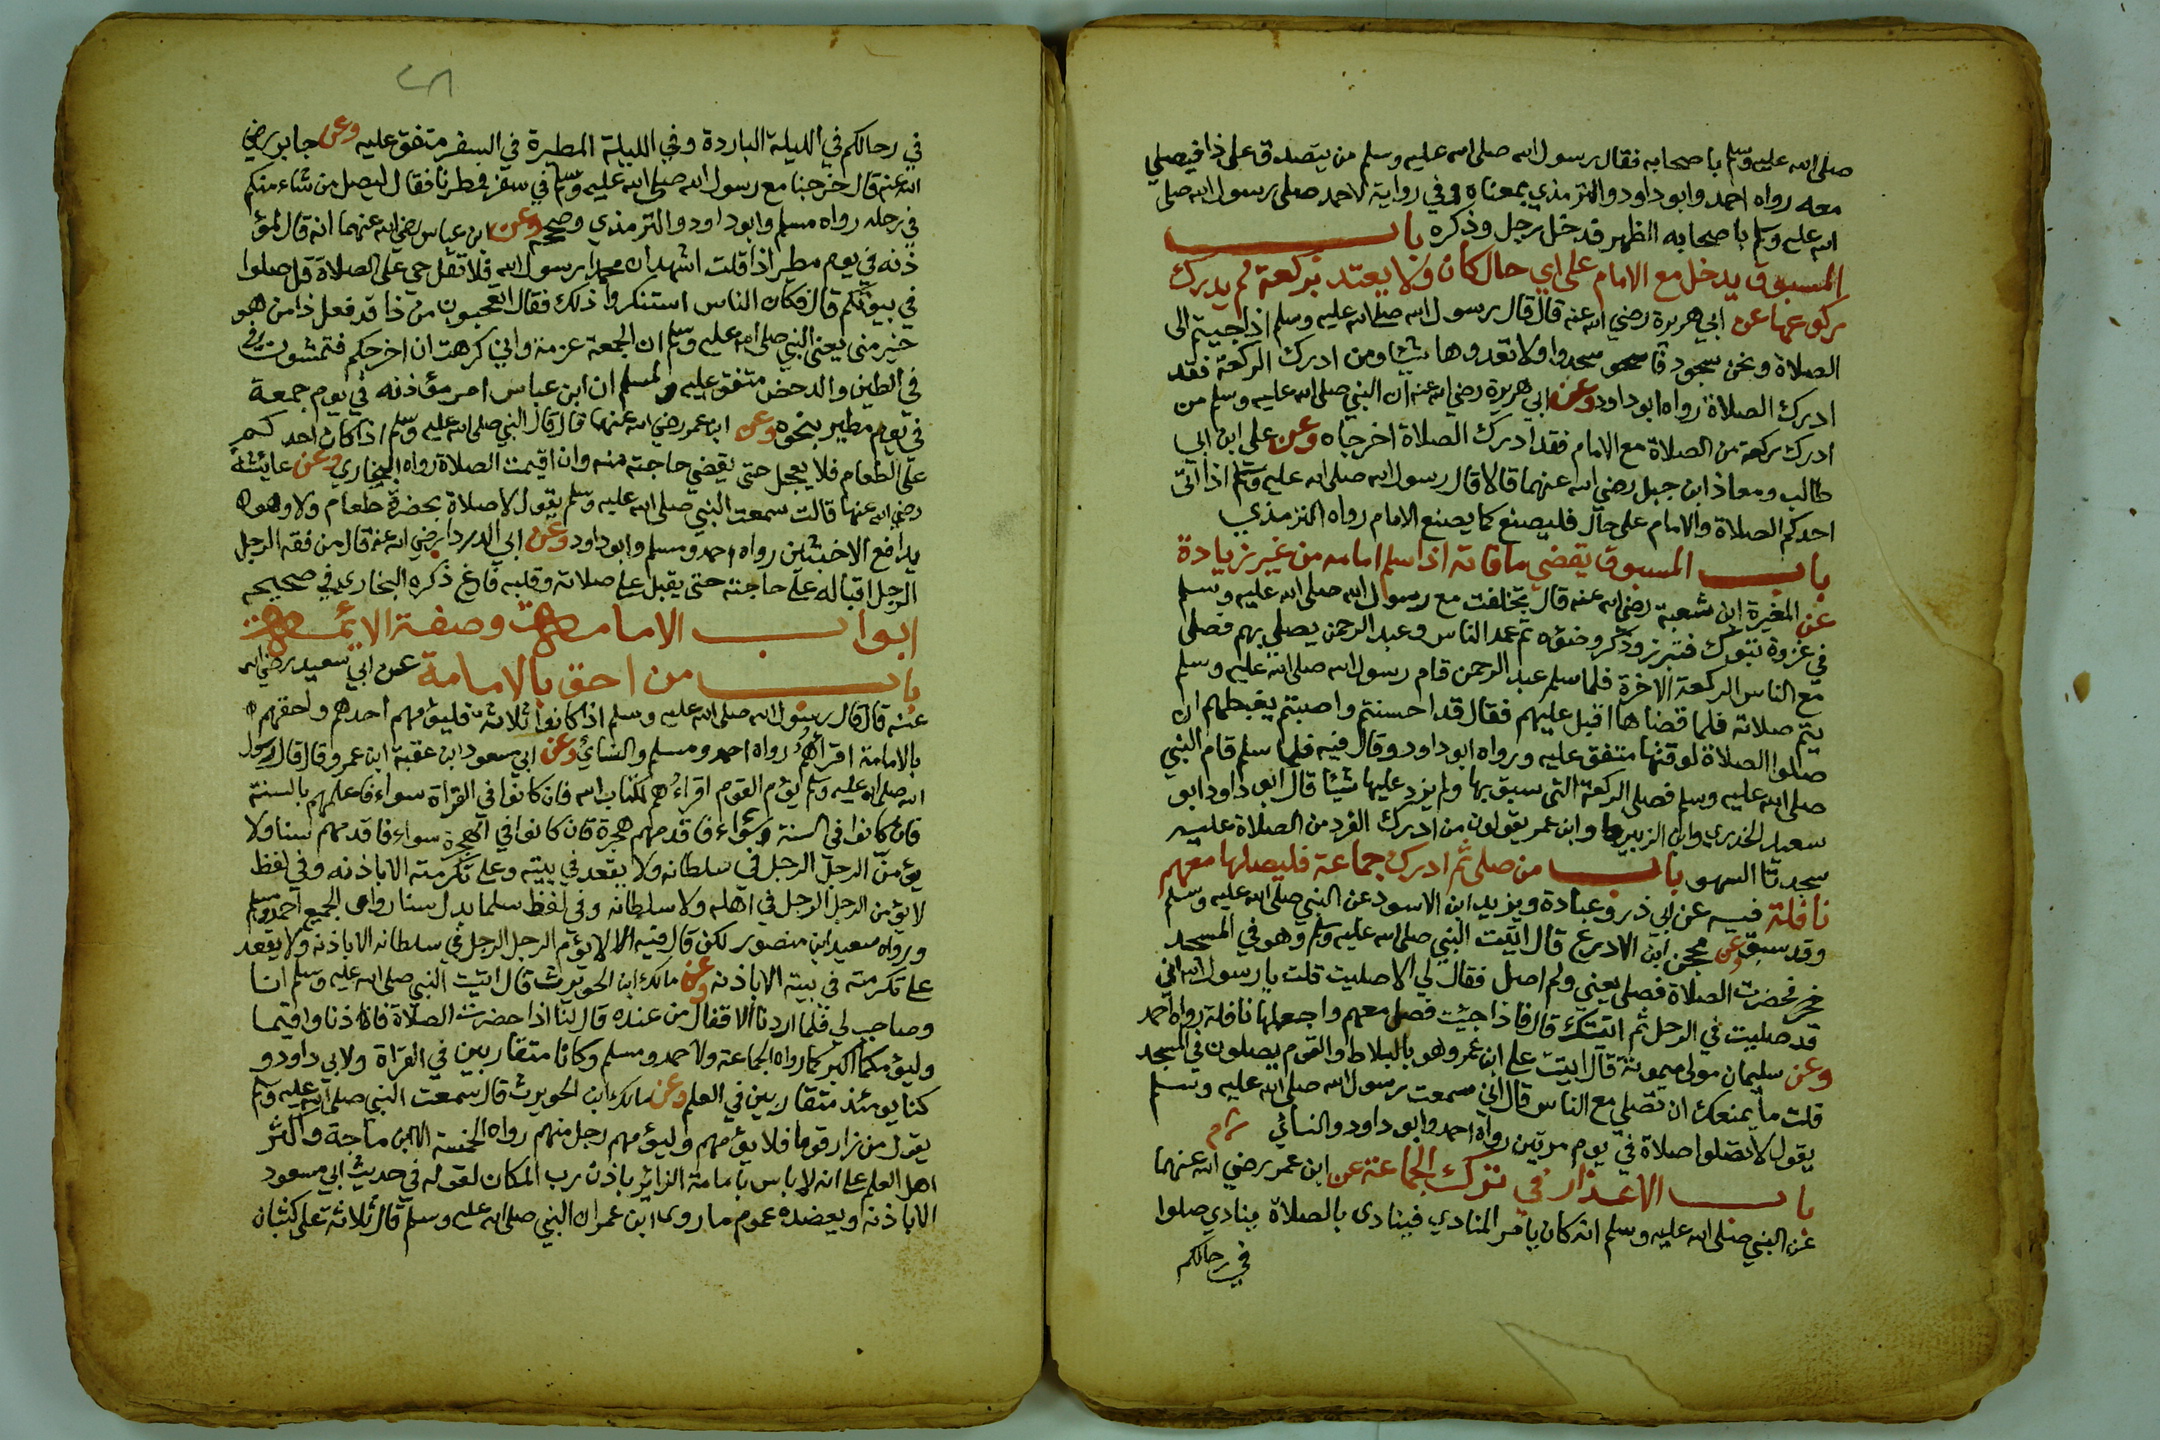 صلى الله عليه وسلم باصحابه فقال رسول الله صلى الله عليه وسلم من يتصدق على ذا فيصلي
معه رواه احمد وابو داود والترمذي بمعناه وفي رواية لاحمد صلى رسول الله صلى
الله عليه وسلم باصحابه الظهر فدخل رجل وذكره باب
المسبوق يدخل مع الامام على اي حال كان ولا يعتد بركعة لم يدرك
ركوعها عن ابي هريرة رضي الله عنه قال قال رسول الله صلى الله عليه وسلم اذا جيتم الى
الصلاة ونحن سجود فاسجدوا ولا تعدوها شيئا ومن ادرك الركعة فقد
ادرك الصلاة رواه ابو داود وعن ابي هريرة رضي الله عنه ان النبي صلى الله عليه وسلم من
ادرك ركعة من الصلاة مع الامام فقد ادرك الصلاة اخرجاه وعن علي ابن ابي
طالب ومعاذ ابن جبل رضي الله عنهما قالا قال رسول الله صلى الله عليه وسلم اذا اتى
احدكم الصلاة والامام على حال فليصنع كما يصنع الامام رواه الترمذي
باب المسبوق يقضي ما فاته اذا سلم امامه من غير زيادة
عن المغيرة ابن شعبة رضي الله عنه قال تخلفت مع رسول الله صلى الله عليه وسلم
في غزوة تبوك فتبرز وذكر وضوءه ثم عمد الناس وعبد الرحمن يصلي بهم فصلى
مع الناس الركعة الاخرة فلما سلم عبد الرحمن قام رسول الله صلى الله عليه وسلم
يتم صلاته فلما قضاها اقبل عليهم فقال قد احسنتم واصبتم يغبطهم ان
صلوا الصلاة لوقتها متفق عليه ورواه ابو داود وقال فيه فلما سلم قام النبي
صلى الله عليه وسلم فصلى الركعة التي سبق بها ولم يزد عليها شيئا قال ابو داود ابو
سعيد الخدري وابن الزبير وابن عمر يقولون من ادرك الفرد من الصلاة عليه
سجدتا السهو باب من صلى ثم ادرك جماعة فليصلها معهم
نافلة فيه عن ابي ذر وعبادة ويزيد ابن الاسود عن النبي صلى الله عليه وسلم
وقد سبق وعن محجن ابن الادرع قال اتيت النبي صلى الله عليه وسلم وهو في المسجد
فحضرت الصلاة فصلى يعني ولم اصل فقال لي الا صليت قلت يا رسول الله اني
قد صليت في الرحل ثم اتيتك قال فاذا جئت فصل معهم واجعلها نافلة رواه احمد
وعن سليمان مولى ميمونة قال اتيت على ابن عمر وهو بالبلاط والقوم يصلون في المسجد
قلت ما يمنعك ان تصلي مع الناس قال اني سمعت رسول الله صلى الله عليه وسلم
يقول لا تصلوا صلاة في يوم مرتين رواه احمد وابو داود والنسائي
باب الاعذار في ترك الجماعة عن ابن عمر رضي الله عنهما
عن النبي صلى الله عليه وسلم انه كان يامر المنادي فينادي بالصلاة ينادي صلوا
في رحالكم
في رحالكم في الليلة الباردة وفي الليلة المطيرة في السفر متفق عليه وعن جابر رضي
الله عنه قال خرجنا مع رسول الله صلى الله عليه وسلم في سفر فمطرنا فقال ليصل من شاء منكم
في رحله رواه مسلم وابو داود والترمذي وصححه وعن ابن عباس رضي الله عنهما انه قال لمؤ
ذنه في يوم مطير اذا قلت اشهد ان محمدا رسول الله فلا تقل حي على الصلاة قل صلوا
في بيوتكم قال فكان الناس استنكروا ذلك فقال اتعجبون من ذا قد فعل ذا من هو
خير مني يعني النبي صلى الله عليه وسلم ان الجمعة عزمة واني كرهت ان اخرجكم فتمشون
في الطين والدحض متفق عليه ولمسلم ان ابن عباس امر مؤذنه في يوم جمعة
في يوم مطير بنحوه وعن ابن عمر رضي الله عنهما قال قال النبي صلى الله عليه وسلم اذا كان احدكم
على الطعام فلا يعجل حتى يقضي حاجته منه وان اقيمت الصلاة رواه البخاري وعن عائشة
رضي الله عنها قالت سمعت النبي صلى الله عليه وسلم يقول لا صلاة بحضرة طعام ولا وهو
يدافع الاخبثين رواه احمد ومسلم وابو داود وعن ابي الدرداء رضي الله عنه قال من فقه الرجل
الرجل اقباله على حاجته حتى يقبل على صلاته وقلبه فارغ ذكره البخاري في صحيحه
ابواب الامامة وصفة الائمة
باب من احق بالامامة عن ابي سعيد رضي الله
عنه قال قال رسول الله صلى الله عليه وسلم اذا كانوا ثلاثة فليؤمهم احدهم واحقهم
بالامامة اقرأهم رواه احمد ومسلم والنسائي وعن ابي مسعود ابن عقبة ابن عمرو قال قال رسول
الله صلى الله عليه وسلم يؤم القوم اقراءهم لكتاب الله فان كانوا في القراة سواء فاعلمهم بالسنة
فان كانوا في السنة سواء فاقدمهم هجرة فان كانوا في الهجرة سواء فاقدمهم سنا ولا
يؤمن الرجل الرجل في سلطانه ولا يقعد في بيته وعلى تكرمته الا باذنه وفي لفظ
لا يؤمن الرجل الرجل في اهله ولا سلطانه وفي لفظ سلما بدل سنا روى الجميع احمد ومسلم
ورواه سعيد ابن منصور لكن قال فيه لا يؤم الرجل الرجل في سلطانه الا باذنه ولا يقعد
على تكرمته في بيته الا باذنه وعن مالك ابن الحويرث قال اتيت النبي صلى الله عليه وسلم انا
وصاحب لي فلما اردنا الاقفال من عنده قال لنا اذا حضرت الصلاة فاذنا واقيما
وليؤمكما اكبركما رواه الجماعة ولاحمد ومسلم وكانا متقاربين في القراة ولابي داود و
كنا يومئذ متقاربين في العلم وعن مالك ابن الحويرث قال سمعت النبي صلى الله عليه وسلم
يقول من زار قوما فلا يؤمهم وليؤمهم رجل منهم رواه الخمسة الا ابن ماجة واكثر
اهل العلم على انه لا باس بامامة الزائر باذن رب المكان لقوله في حديث ابي مسعود
الا باذنه ويعضده عموم ما روى ابن عمر ان النبي صلى الله عليه وسلم قال ثلاثة على كثبان